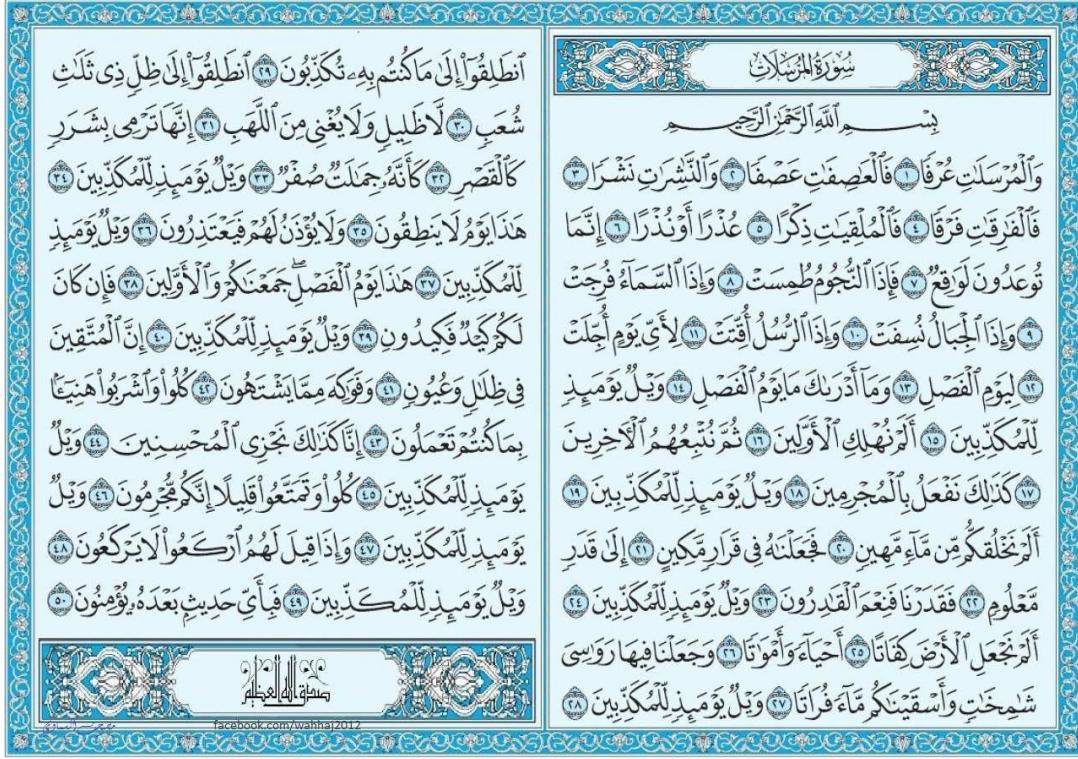 سُورَةُ المُرۡسَلَات
بِسۡمِ ٱللَّهِ ٱلرَّحۡمَٰنِ ٱلرَّحِيمِ
وَٱلۡمُرۡسَلَٰتِ عُرۡفٗا ١ فَٱلۡعَٰصِفَٰتِ عَصۡفٗا ٢ وَٱلنَّٰشِرَٰتِ نَشۡرٗا ٣
فَٱلۡفَٰرِقَٰتِ فَرۡقٗا ٤ فَٱلۡمُلۡقِيَٰتِ ذِكۡرًا ٥ عُذۡرًا أَوۡ نُذۡرًا ٦ إِنَّمَا
تُوعَدُونَ لَوَٰقِعٞ ٧ فَإِذَا ٱلنُّجُومُ طُمِسَتۡ ٨ وَإِذَا ٱلسَّمَآءُ فُرِجَتۡ
٩ وَإِذَا ٱلۡجِبَالُ نُسِفَتۡ ١٠ وَإِذَا ٱلرُّسُلُ أُقِّتَتۡ ١١ لِأَيِّ يَوۡمٍ أُجِّلَتۡ
١٢ لِيَوۡمِ ٱلۡفَصۡلِ ١٣ وَمَآ أَدۡرَىٰكَ مَا يَوۡمُ ٱلۡفَصۡلِ ١٤ وَيۡلٞ يَوۡمَئِذٖ
لِّلۡمُكَذِّبِينَ ١٥ أَلَمۡ نُهۡلِكِ ٱلۡأَوَّلِينَ ١٦ ثُمَّ نُتۡبِعُهُمُ ٱلۡأٓخِرِينَ
١٧ كَذَٰلِكَ نَفۡعَلُ بِٱلۡمُجۡرِمِينَ ١٨ وَيۡلٞ يَوۡمَئِذٖ لِّلۡمُكَذِّبِينَ ١٩
أَلَمۡ نَخۡلُقكُّم مِّن مَّآءٖ مَّهِينٖ ٢٠ فَجَعَلۡنَٰهُ فِي قَرَارٖ مَّكِينٍ ٢١ إِلَىٰ قَدَرٖ
مَّعۡلُومٖ ٢٢ فَقَدَرۡنَا فَنِعۡمَ ٱلۡقَٰدِرُونَ ٢٣ وَيۡلٞ يَوۡمَئِذٖ لِّلۡمُكَذِّبِينَ ٢٤
أَلَمۡ نَجۡعَلِ ٱلۡأَرۡضَ كِفَاتًا ٢٥ أَحۡيَآءٗ وَأَمۡوَٰتٗا ٢٦ وَجَعَلۡنَا فِيهَا رَوَٰسِيَ
شَٰمِخَٰتٖ وَأَسۡقَيۡنَٰكُم مَّآءٗ فُرَاتٗا ٢٧ وَيۡلٞ يَوۡمَئِذٖ لِّلۡمُكَذِّبِينَ ٢٨
ٱنطَلِقُوٓاْ إِلَىٰ مَا كُنتُم بِهِۦ تُكَذِّبُونَ ٢٩ ٱنطَلِقُوٓاْ إِلَىٰ ظِلّٖ ذِي ثَلَٰثِ
شُعَبٖ ٣٠ لَّا ظَلِيلٖ وَلَا يُغۡنِي مِنَ ٱللَّهَبِ ٣١ إِنَّهَا تَرۡمِي بِشَرَرٖ
كَٱلۡقَصۡرِ ٣٢ كَأَنَّهُۥ جِمَٰلَتٞ صُفۡرٞ ٣٣ وَيۡلٞ يَوۡمَئِذٖ لِّلۡمُكَذِّبِينَ ٣٤
هَٰذَا يَوۡمُ لَا يَنطِقُونَ ٣٥ وَلَا يُؤۡذَنُ لَهُمۡ فَيَعۡتَذِرُونَ ٣٦ وَيۡلٞ يَوۡمَئِذٖ
لِّلۡمُكَذِّبِينَ ٣٧ هَٰذَا يَوۡمُ ٱلۡفَصۡلِۖ جَمَعۡنَٰكُمۡ وَٱلۡأَوَّلِينَ ٣٨ فَإِن كَانَ
لَكُمۡ كَيۡدٞ فَكِيدُونِ ٣٩ وَيۡلٞ يَوۡمَئِذٖ لِّلۡمُكَذِّبِينَ ٤٠ إِنَّ ٱلۡمُتَّقِينَ
فِي ظِلَٰلٖ وَعُيُونٖ ٤١ وَفَوَٰكِهَ مِمَّا يَشۡتَهُونَ ٤٢ كُلُواْ وَٱشۡرَبُواْ هَنِيٓـَٔۢا
بِمَا كُنتُمۡ تَعۡمَلُونَ ٤٣ إِنَّا كَذَٰلِكَ نَجۡزِي ٱلۡمُحۡسِنِينَ ٤٤ وَيۡلٞ
يَوۡمَئِذٖ لِّلۡمُكَذِّبِينَ ٤٥ كُلُواْ وَتَمَتَّعُواْ قَلِيلًا إِنَّكُم مُّجۡرِمُونَ ٤٦ وَيۡلٞ
يَوۡمَئِذٖ لِّلۡمُكَذِّبِينَ ٤٧ وَإِذَا قِيلَ لَهُمُ ٱرۡكَعُواْ لَا يَرۡكَعُونَ ٤٨
وَيۡلٞ يَوۡمَئِذٖ لِّلۡمُكَذِّبِينَ ٤٩ فَبِأَيِّ حَدِيثِۭ بَعۡدَهُۥ يُؤۡمِنُونَ ٥٠
صدق الله العظيم
facebook.com/wahhaj2012